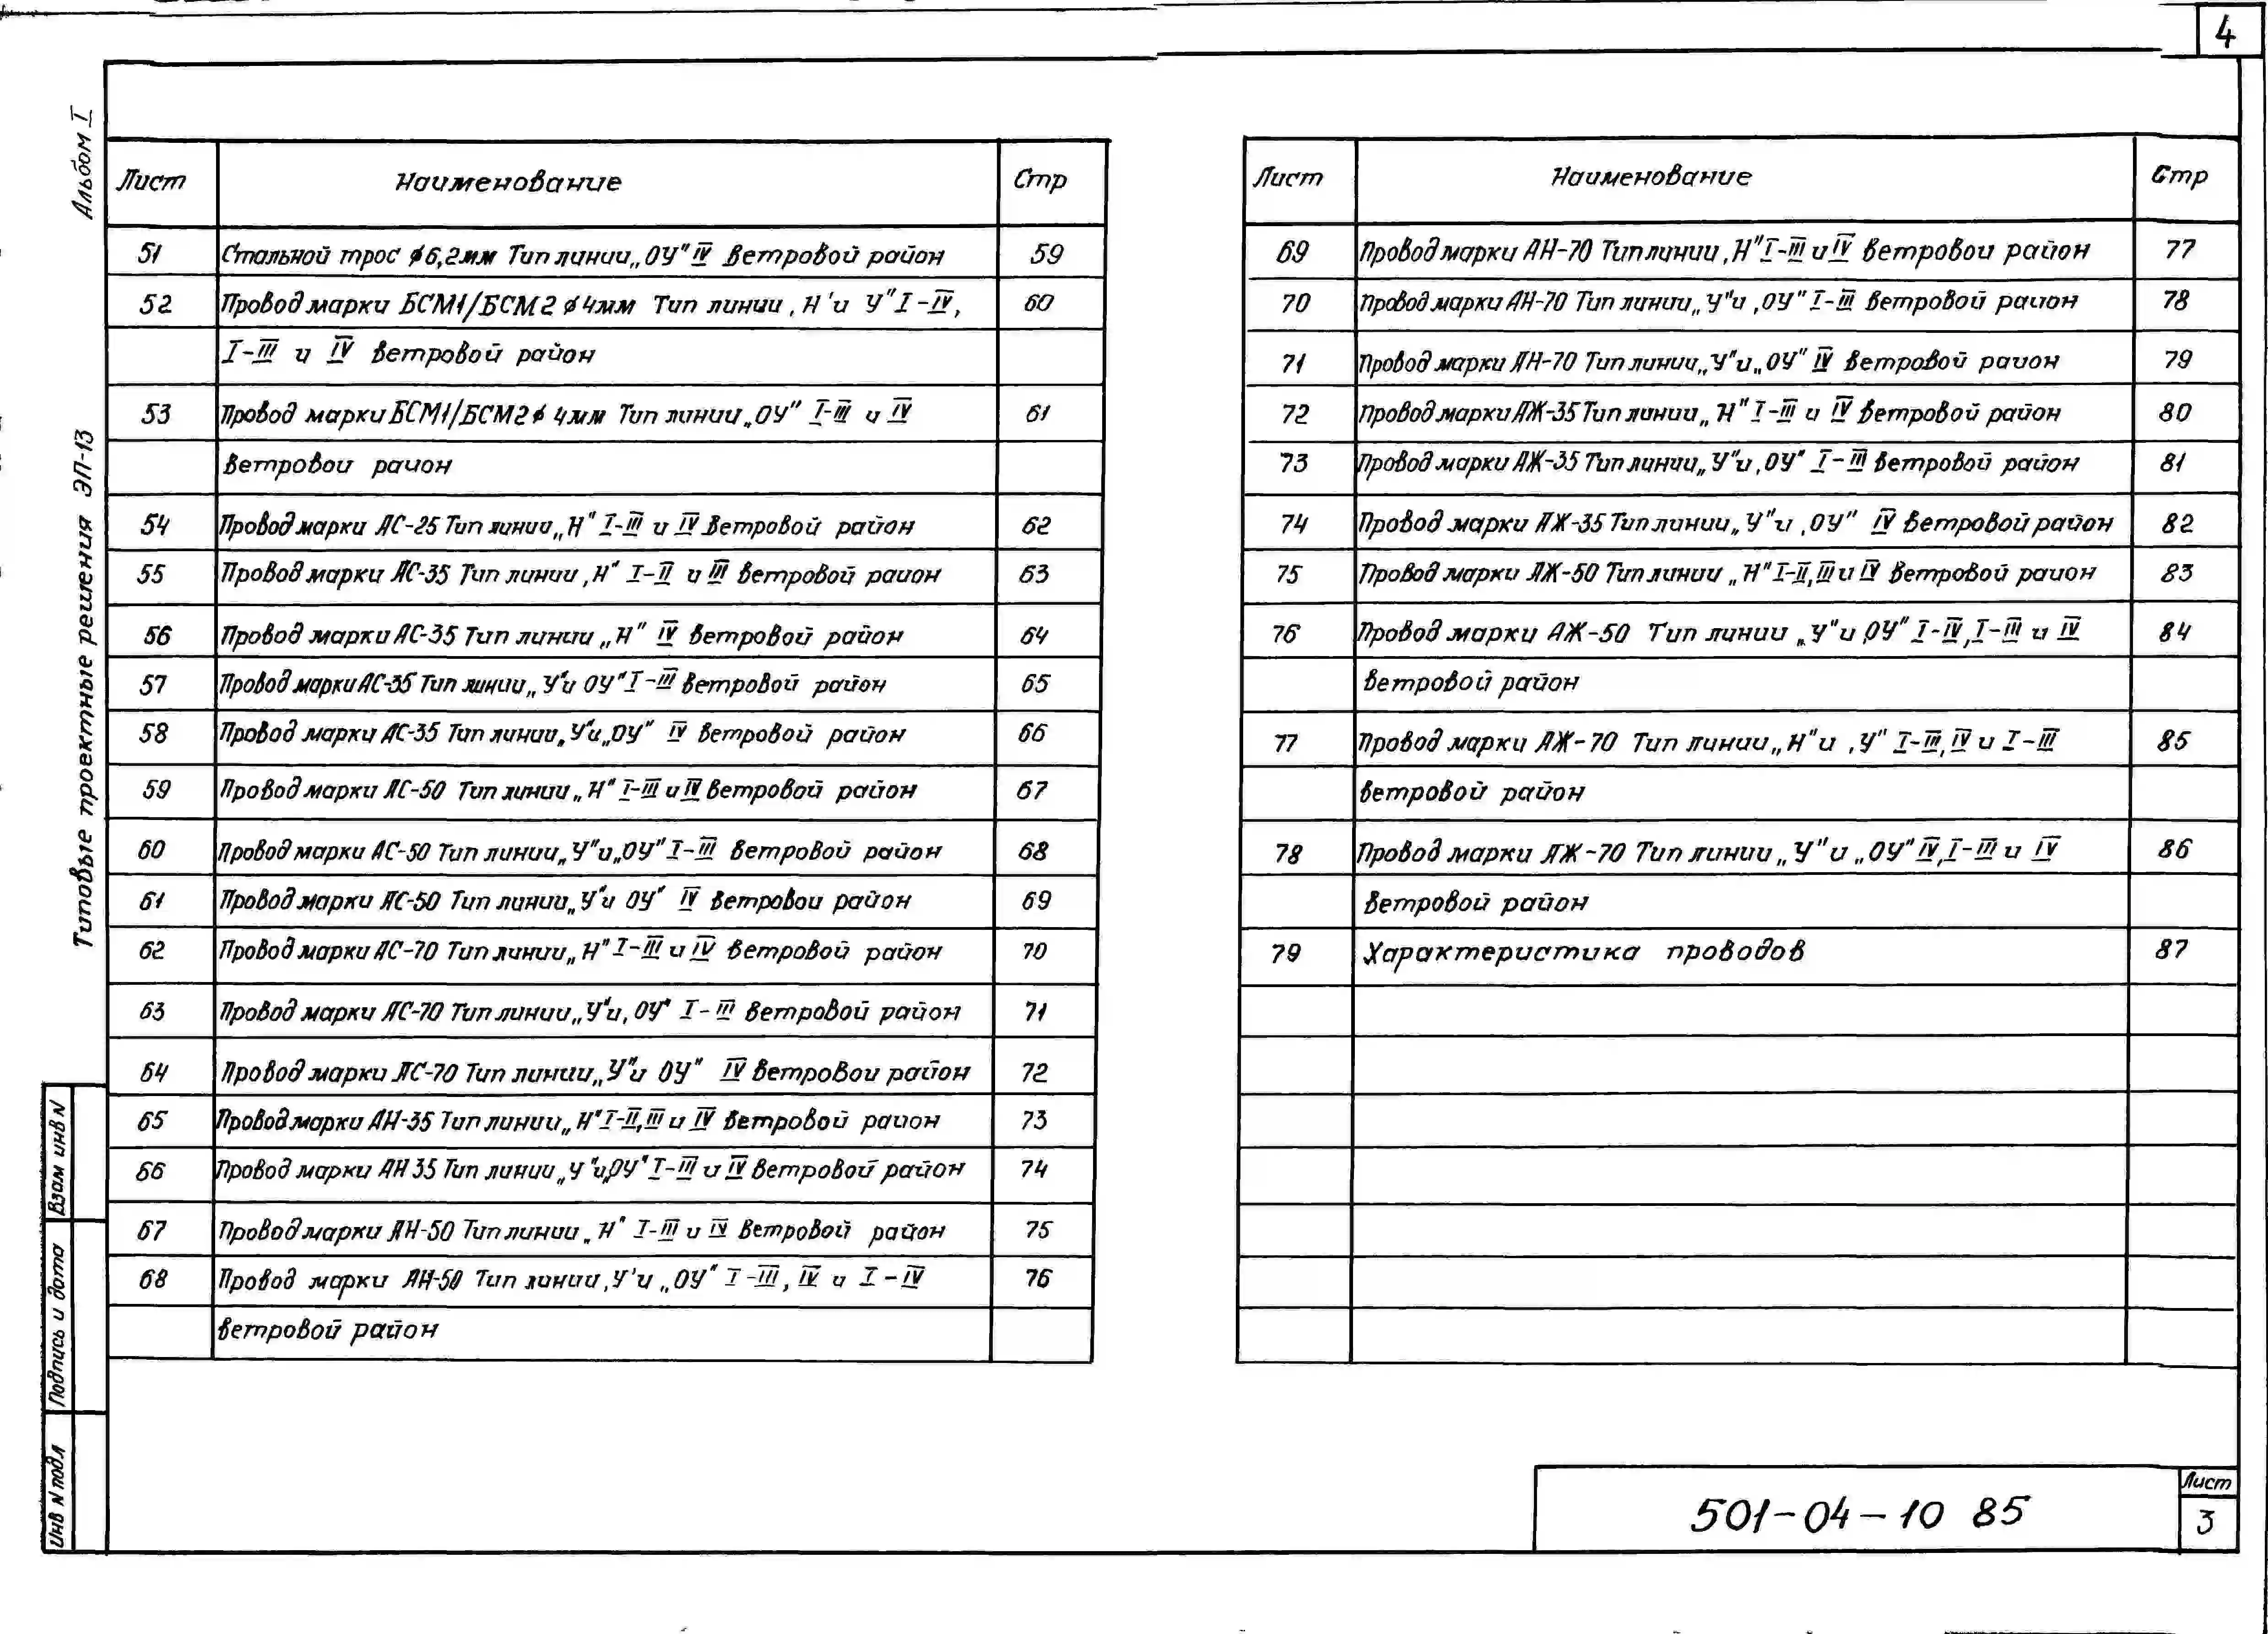 4
Альбом I
Типовые проектные решения ЭП-13
Лист Наименование Стр
51 Стальной трос ⌀6,2мм Тип линии „ОУ" IV ветровой район 59
52 Провод марки БСМ1/БСМ2 ⌀4мм Тип линии ,Н' и У" I-IV, 60
I-III и IV ветровой район
53 Провод марки БСМ1/БСМ2 ⌀ 4мм Тип линии „ОУ" I-III и IV 61
ветровой район
54 Провод марки АС-25 Тип линии „Н" I-III и IV ветровой район 62
55 Провод марки АС-35 Тип линии ,Н" I-II и III ветровой район 63
56 Провод марки АС-35 Тип линии „Н" IV ветровой район 64
57 Провод марки АС-35 Тип линии „У"и ОУ" I-III ветровой район 65
58 Провод марки АС-35 Тип линии „У"и „ОУ" IV ветровой район 66
59 Провод марки АС-50 Тип линии „Н" I-III и IV ветровой район 67
60 Провод марки АС-50 Тип линии „У"и „ОУ" I-III ветровой район 68
61 Провод марки АС-50 Тип линии „У"и ОУ" IV ветровой район 69
62 Провод марки АС-70 Тип линии „Н" I-III и IV ветровой район 70
63 Провод марки АС-70 Тип линии „У"и, ОУ" I-III ветровой район 71
64 Провод марки АС-70 Тип линии „У"и ОУ" IV ветровой район 72
65 Провод марки АН-35 Тип линии „Н" I-II, III и IV ветровой район 73
66 Провод марки АН 35 Тип линии „У"и „ОУ" I-III и IV ветровой район 74
67 Провод марки АН-50 Тип линии „Н" I-III и IV ветровой район 75
68 Провод марки АН-50 Тип линии ,У'и „ОУ" I-III, IV и I-IV 76
ветровой район
Лист Наименование Стр
69 Провод марки АН-70 Тип линии ,Н" I-III и IV ветровой район 77
70 Провод марки АН-70 Тип линии „У"и ,ОУ" I-III ветровой район 78
71 Провод марки АН-70 Тип линии „У"и „ОУ" IV ветровой район 79
72 Провод марки АЖ-35 Тип линии „Н" I-III и IV ветровой район 80
73 Провод марки АЖ-35 Тип линии „У"и ,ОУ" I-III ветровой район 81
74 Провод марки АЖ-35 Тип линии „У"и ,ОУ" IV ветровой район 82
75 Провод марки АЖ-50 Тип линии „Н" I-II, III и IV ветровой район 83
76 Провод марки АЖ-50 Тип линии „У"и ,ОУ" I-IV, I-III и IV 84
ветровой район
77 Провод марки АЖ-70 Тип линии „Н"и ,У" I-III, IV и I-III 85
ветровой район
78 Провод марки АЖ-70 Тип линии „У"и „ОУ" IV, I-III и IV 86
ветровой район
79 Характеристика проводов 87
Взам инв N
Подпись и дата
Инв N подл
501-04-10 85
Лист
3